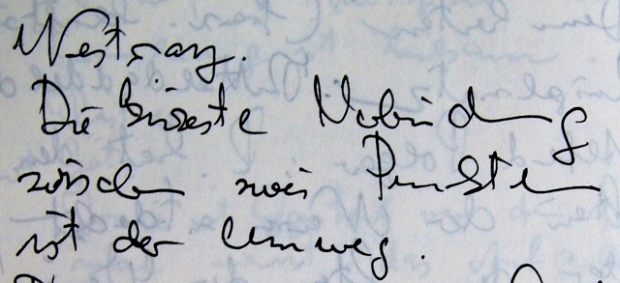 Die kürzeste Verbindung
zwischen zwei Punkten
ist der Umweg.